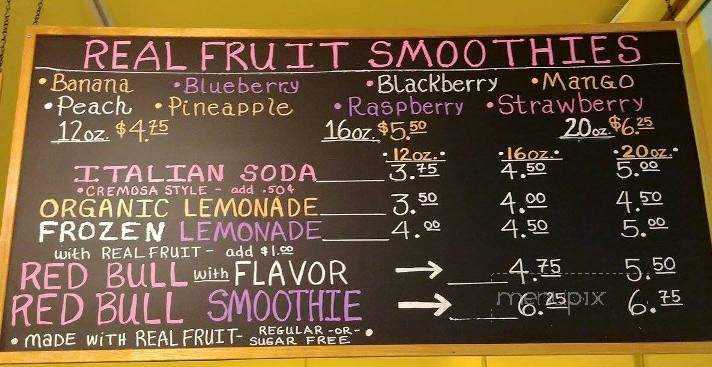 REAL FRUIT SMOOTHIES
• Banana • Blueberry • Blackberry • Mango
• Peach • Pineapple • Raspberry • Strawberry
12oz. $4.75 16oz. $5.50 20oz. $6.25
• 12oz. • • 16oz. • • 20oz. •
ITALIAN SODA 3.75 4.50 5.00
• CREMOSA STYLE - add .50¢
ORGANIC LEMONADE 3.50 4.00 4.50
FROZEN LEMONADE 4.00 4.50 5.00
with REAL FRUIT - add $1.00
RED BULL with FLAVOR → 4.75 5.50
RED BULL SMOOTHIE → 6.25 6.75
menupix
• MADE WITH REAL FRUIT - REGULAR -OR- SUGAR FREE •